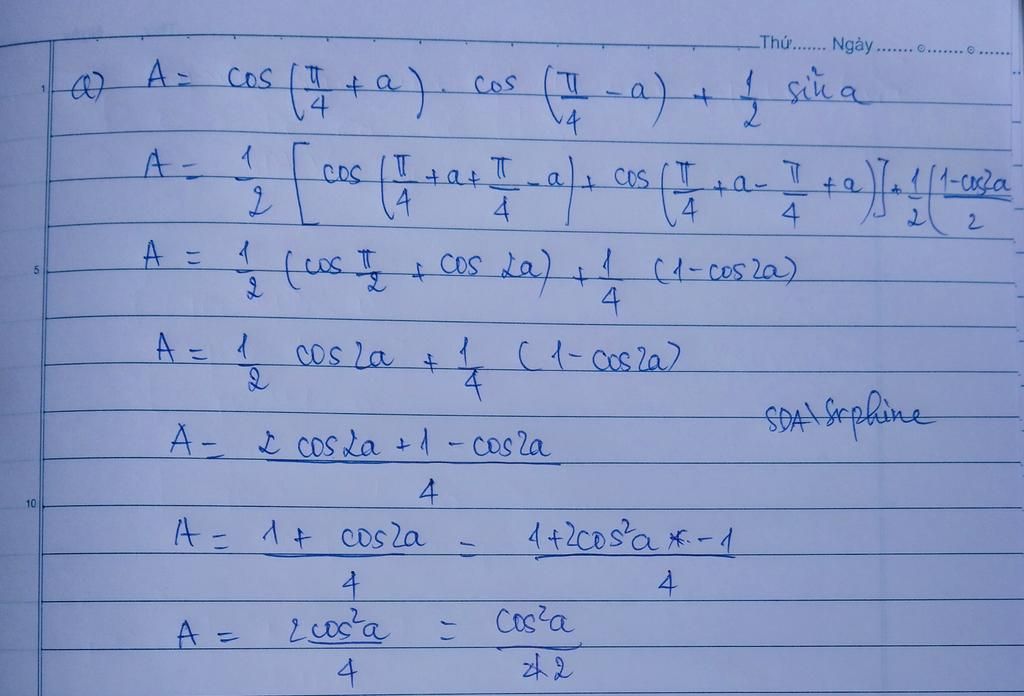 Thứ....... Ngày ....... ⊙....... ⊙......
1 a) A = cos (π/4 + a) . cos (π/4 - a) + 1/2 sin²a
A = 1/2 [cos (π/4 + a + π/4 - a) + cos (π/4 + a - π/4 + a)] + 1/2 (1-cos2a/2
5 A = 1/2 (cos π/2 + cos 2a) + 1/4 (1-cos2a)
A = 1/2 cos2a + 1/4 (1-cos2a)
SDA\Srphine
A = 2 cos2a + 1 - cos2a / 4
10
A = 1 + cos2a / 4 = 1+2cos²a - 1 / 4
A = 2cos²a / 4 = cos²a / 2